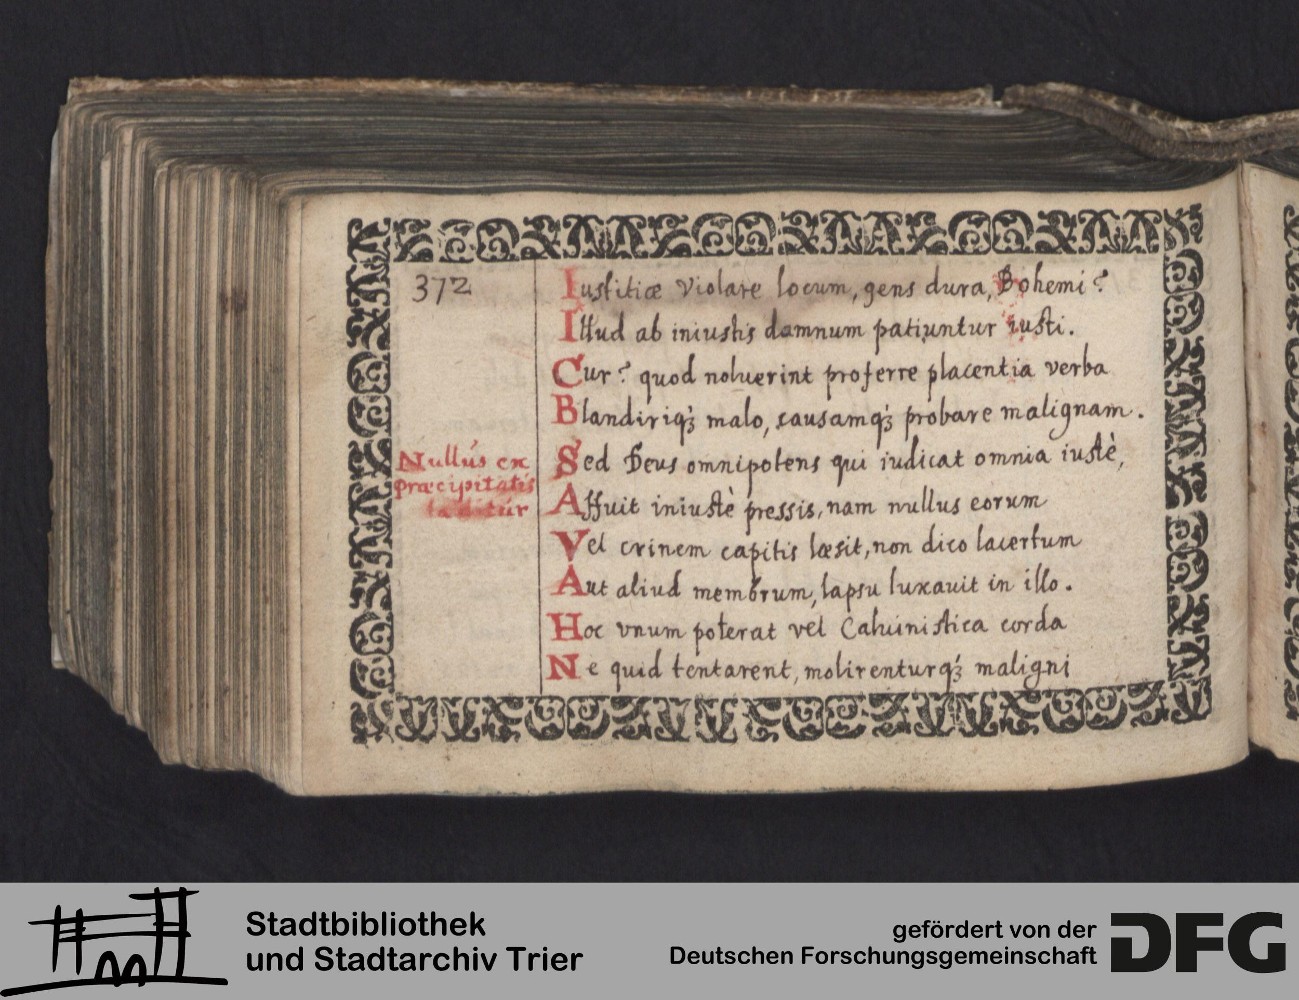 372
Iustitiæ violare locum, gens dura, Bohemi?
Illud ab iniustis damnum patiuntur iusti.
Cur? quod noluerint proferre placentia verba
Blandiriq́; malo, causamq́; probare malignam.
Nullus ex
præcipitatis
læditur
Sed Deus omnipotens qui iudicat omnia iustè,
Affuit iniustè pressis, nam nullus eorum
Vel crinem capitis læsit, non dico lacertum
Aut aliud membrum, lapsu luxauit in illo.
Hoc vnum poterat vel Caluinistica corda
Ne quid tentarent, molirenturq́; maligni
Stadtbibliothek
und Stadtarchiv Trier
gefördert von der
Deutschen Forschungsgemeinschaft
DFG